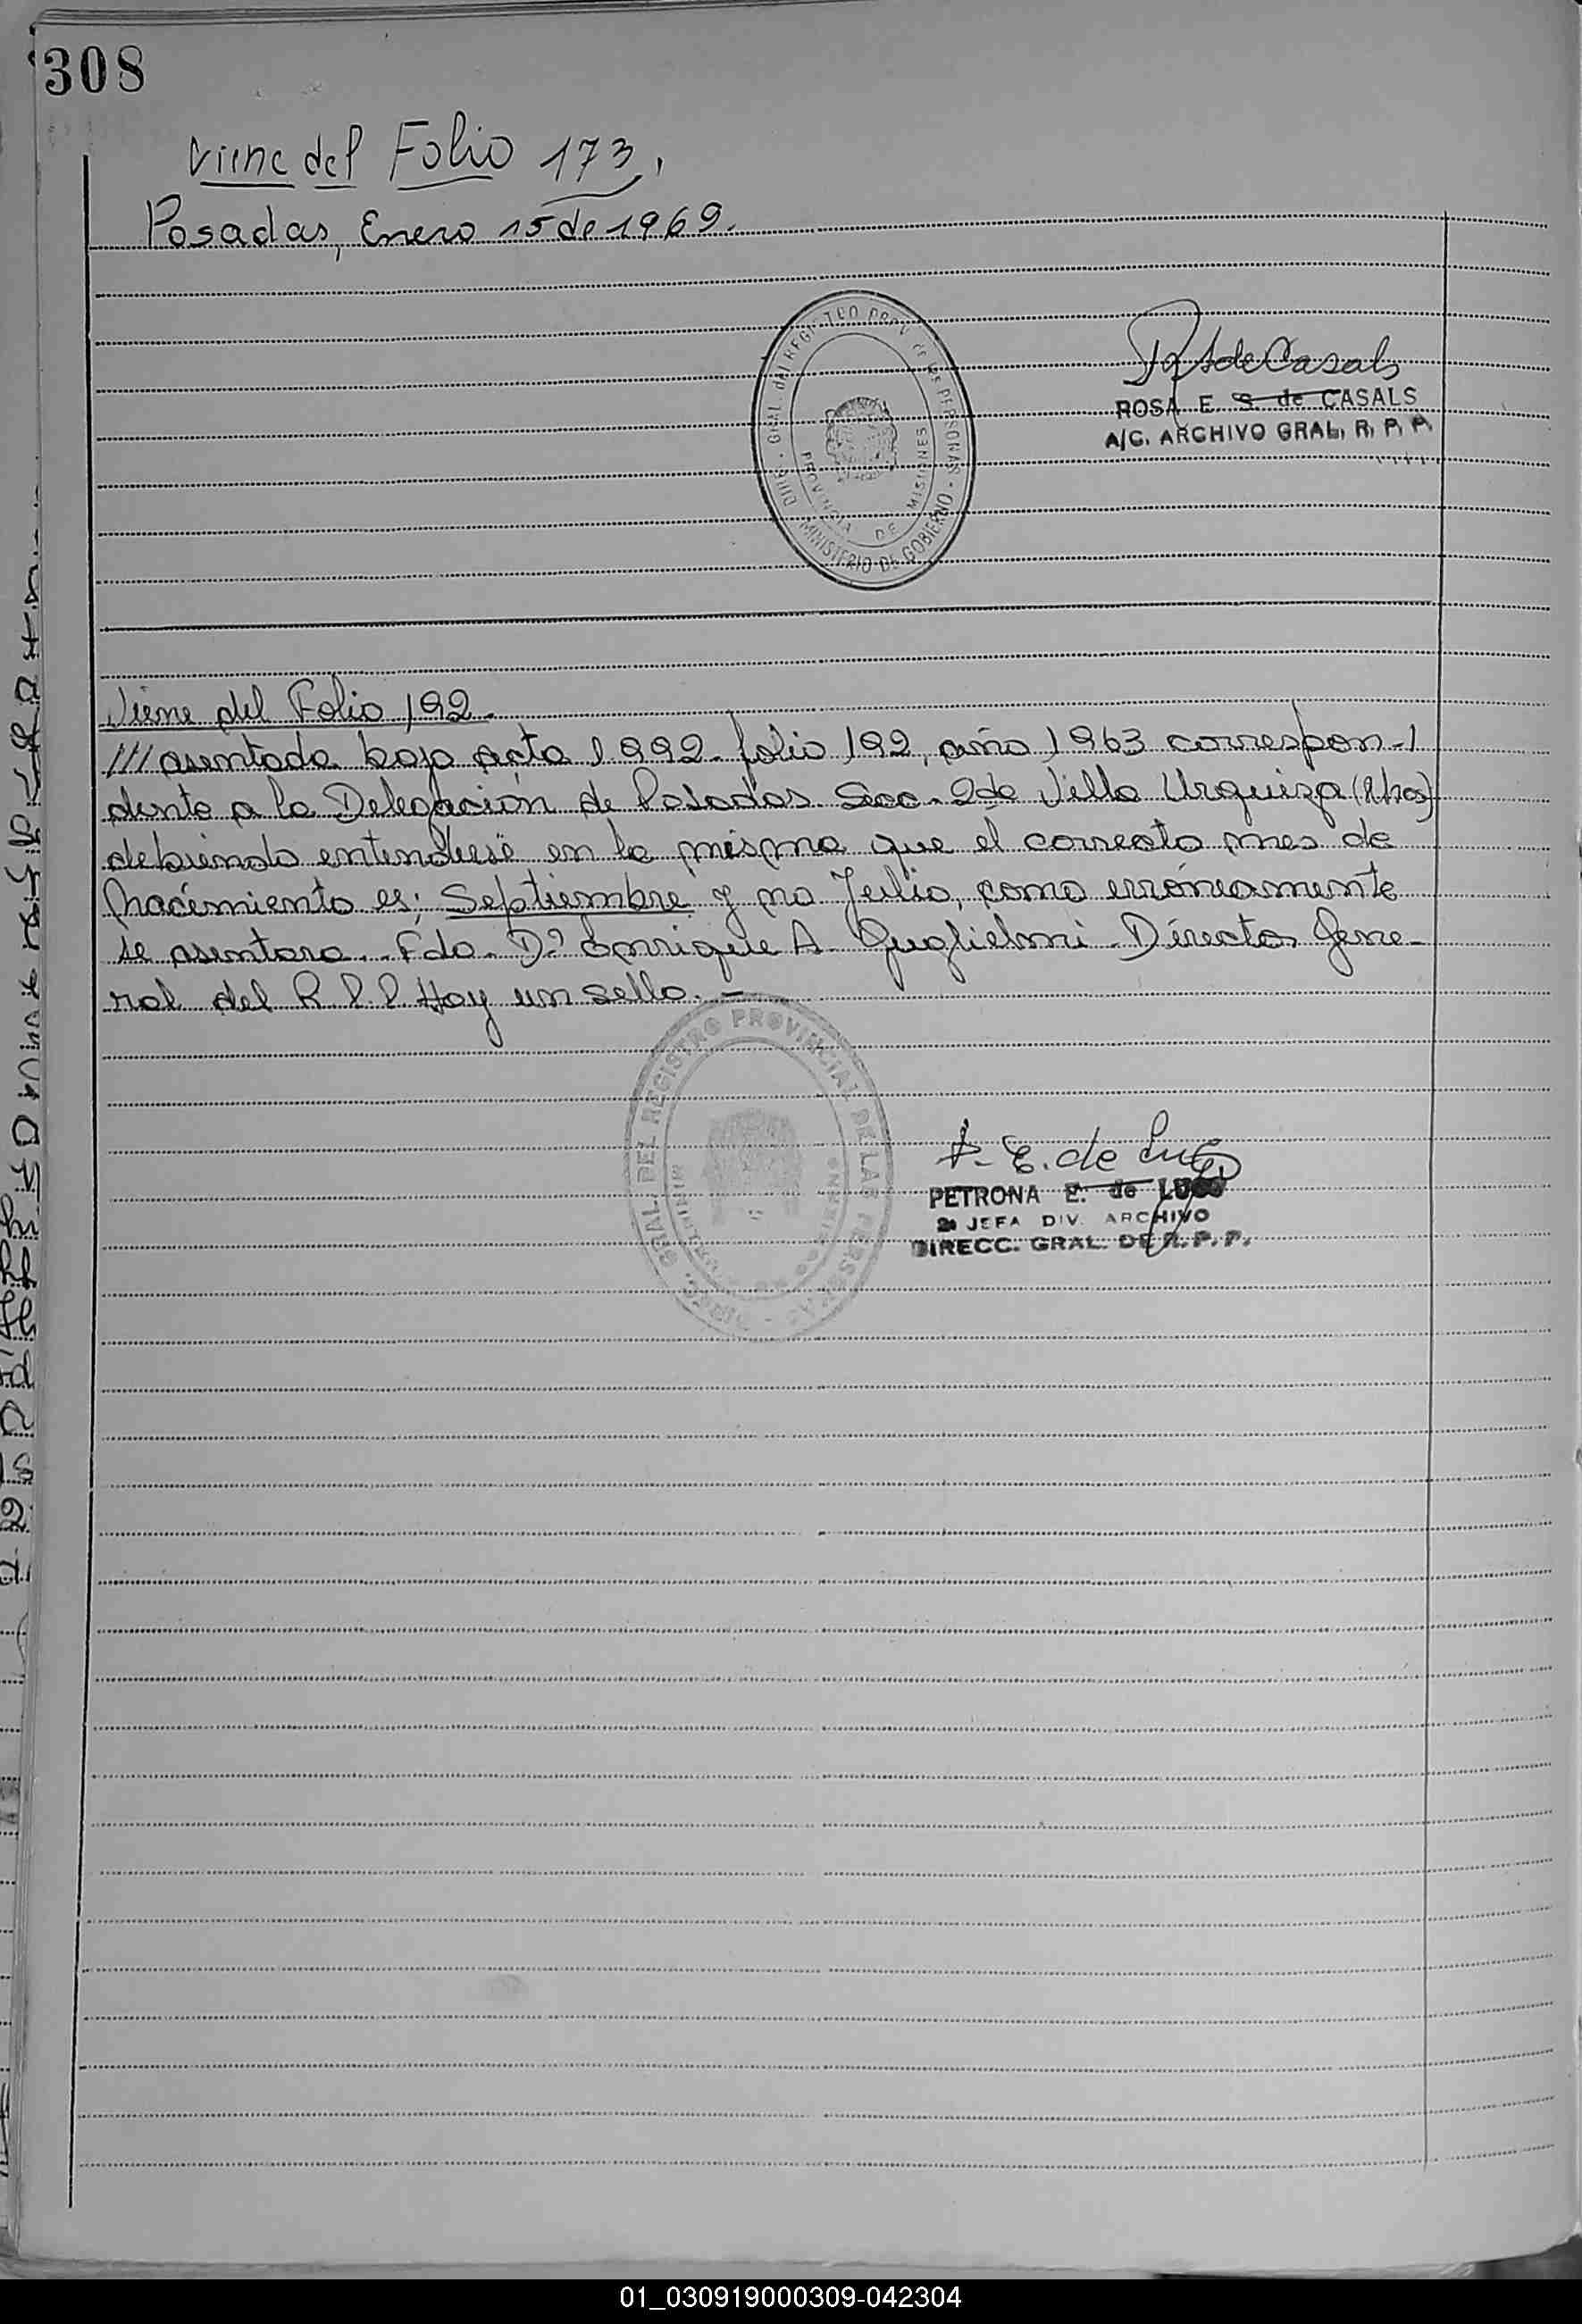 308
Viene del Folio 173.
Posadas, Enero 15 de 1969.
DIRE. GRAL. del REGISTRO PROV. de las PERSONAS - MINISTERIO DE GOBIERNO -
PROVINCIA DE MISIONES
ROSA E. S. de CASALS
A/C. ARCHIVO GRAL. R. P. P.
Viene del Folio 192.
/// asentada bajo acta 1992- folio 192, año 1963 correspon-/
diente a la Delegación de Posadas Secc. 2da Villa Urquiza
debiendo entenderse en la misma que el correcto mes de
Nacimiento es; Septiembre y no Julio, como erróneamente
se asentara.- Fdo. Dº Enrique A. Guglielmi - Director Gene-
ral del R.P.P. Hay un sello.-
DIRECC. GRAL. DEL REGISTRO PROVINCIAL DE LAS PERSONAS -
P. E. de Lugo
PETRONA E. de LUGO
JEFA DIV. ARCHIVO
DIRECC. GRAL. DE R. P. P.
01_030919000309-042304